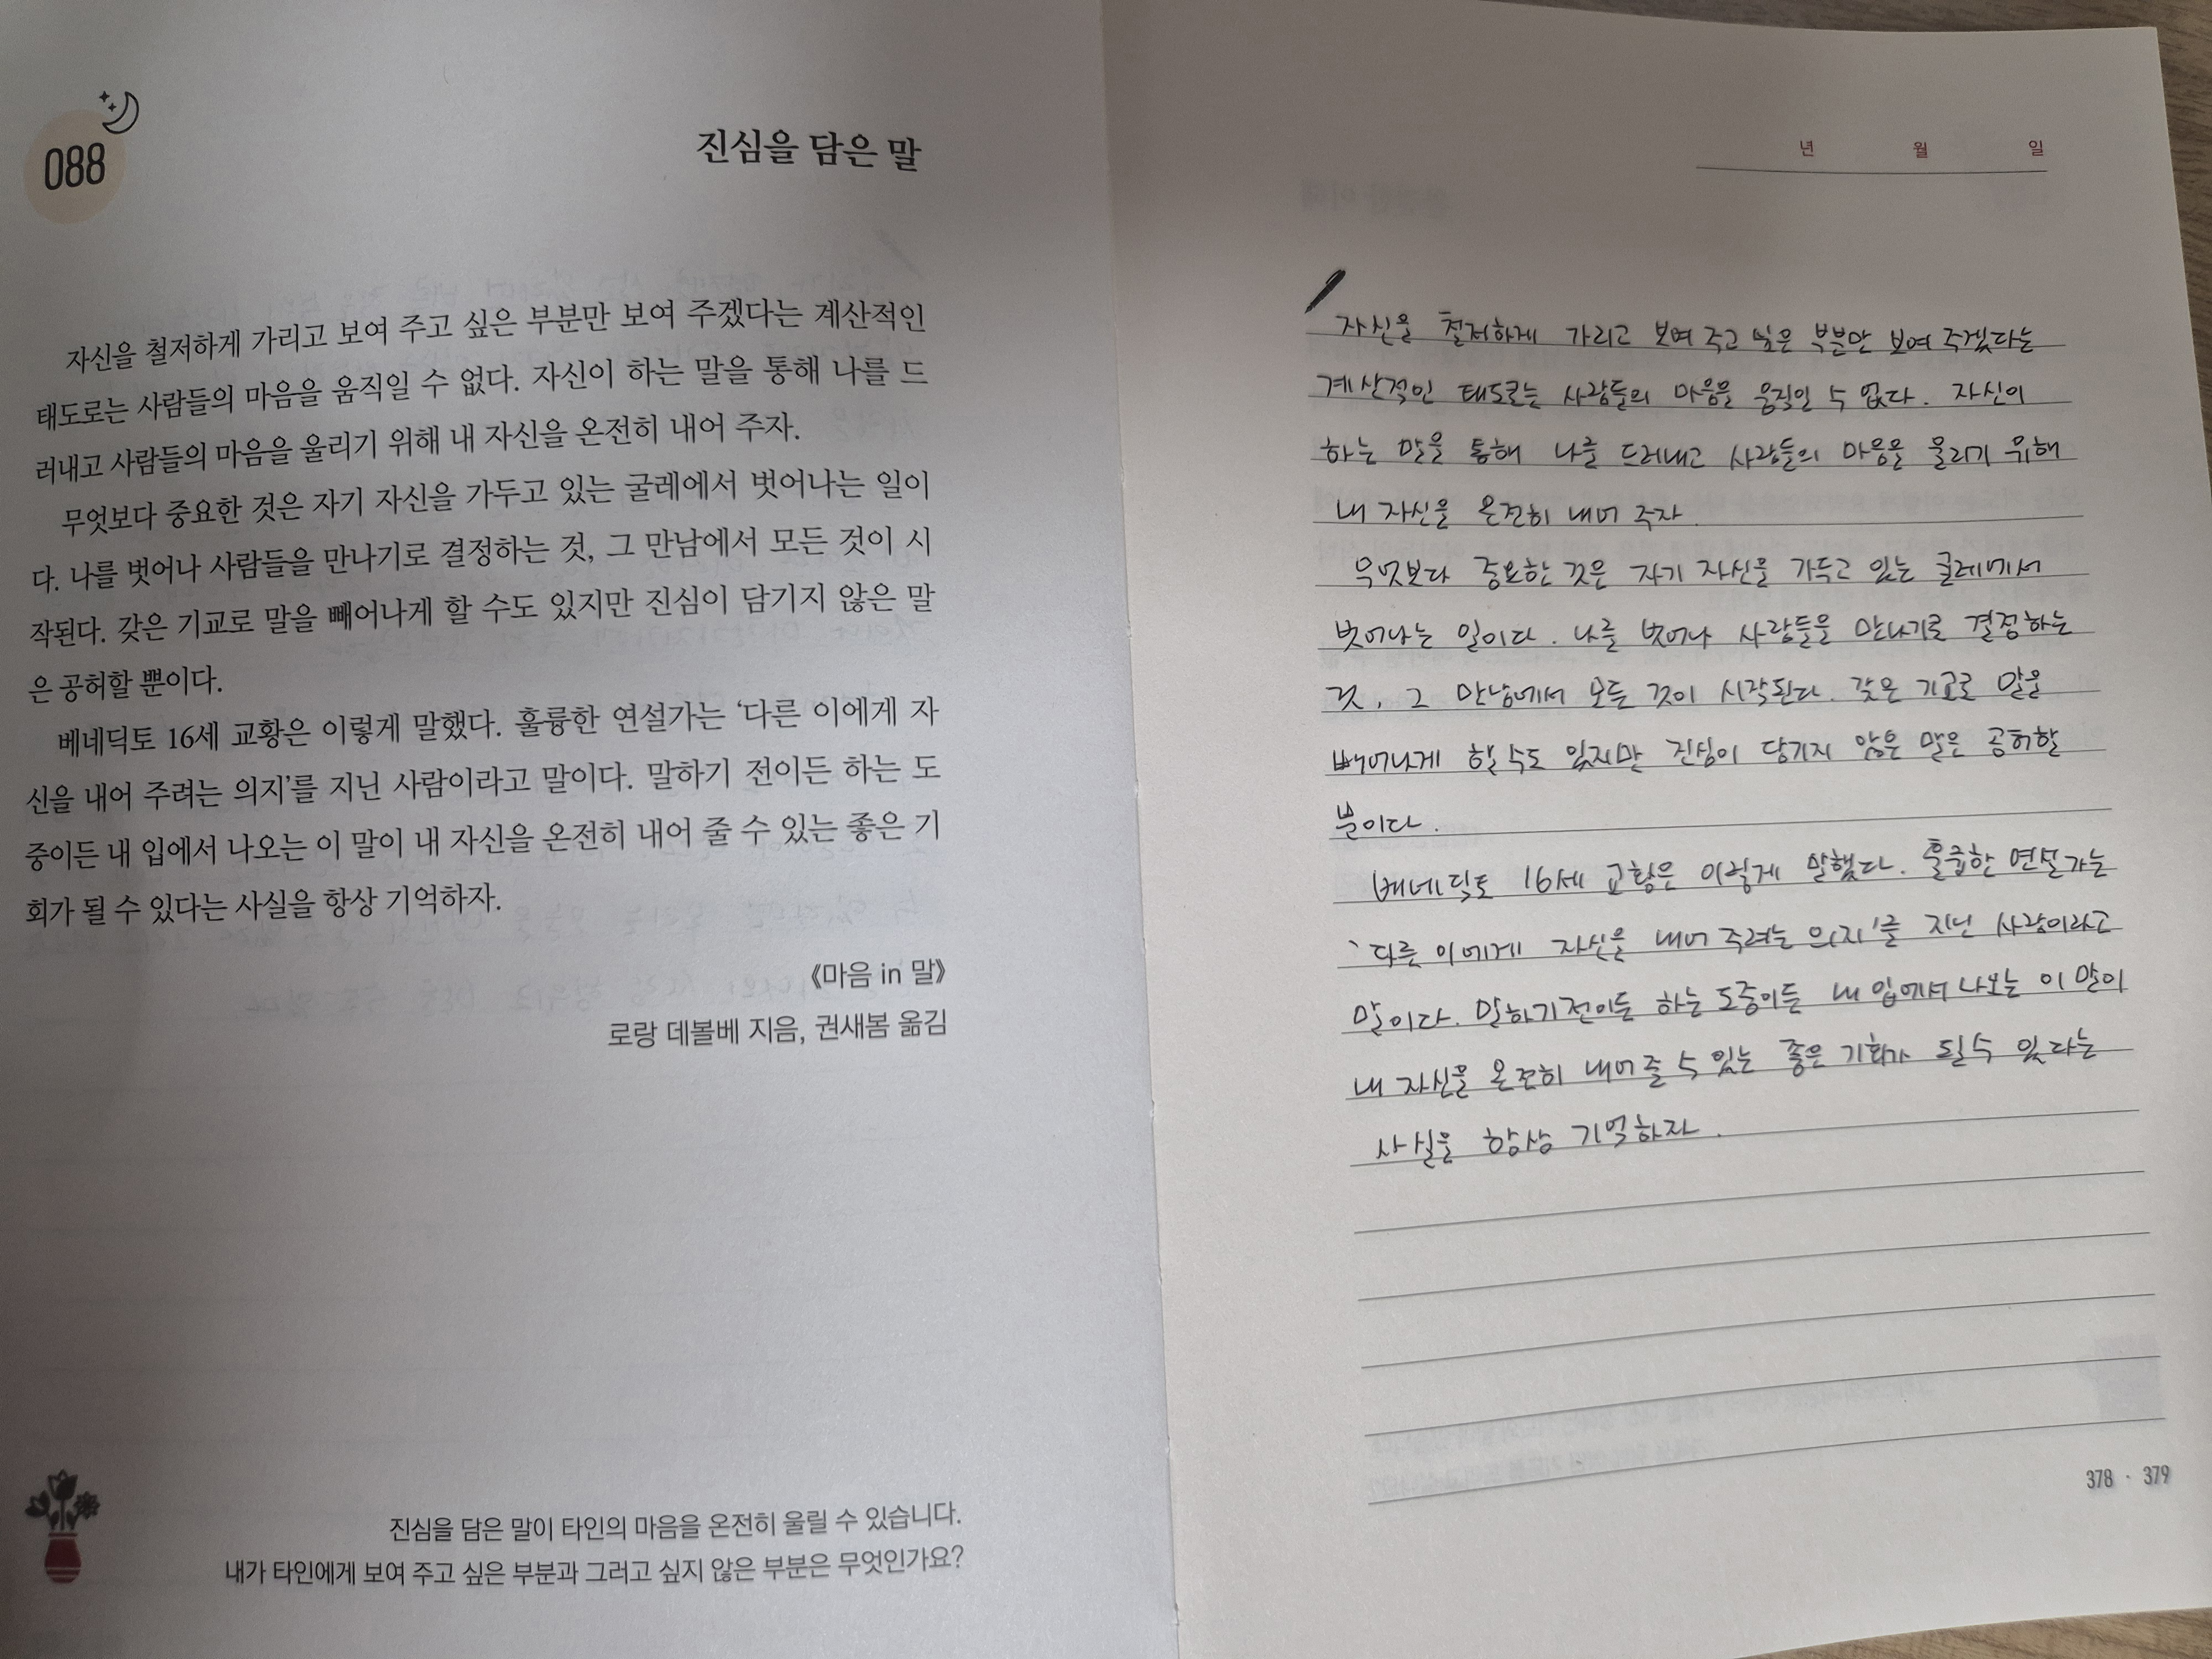 088
진심을 담은 말
자신을 철저하게 가리고 보여 주고 싶은 부분만 보여 주겠다는 계산적인
태도로는 사람들의 마음을 움직일 수 없다. 자신이 하는 말을 통해 나를 드
러내고 사람들의 마음을 울리기 위해 내 자신을 온전히 내어 주자.
무엇보다 중요한 것은 자기 자신을 가두고 있는 굴레에서 벗어나는 일이
다. 나를 벗어나 사람들을 만나기로 결정하는 것, 그 만남에서 모든 것이 시
작된다. 갖은 기교로 말을 빼어나게 할 수도 있지만 진심이 담기지 않은 말
은 공허할 뿐이다.
베네딕토 16세 교황은 이렇게 말했다. 훌륭한 연설가는 ‘다른 이에게 자
신을 내어 주려는 의지’를 지닌 사람이라고 말이다. 말하기 전이든 하는 도
중이든 내 입에서 나오는 이 말이 내 자신을 온전히 내어 줄 수 있는 좋은 기
회가 될 수 있다는 사실을 항상 기억하자.
《마음 in 말》
로랑 데볼베 지음, 권새봄 옮김
진심을 담은 말이 타인의 마음을 온전히 울릴 수 있습니다.
내가 타인에게 보여 주고 싶은 부분과 그러고 싶지 않은 부분은 무엇인가요?
년 월 일
자신을 철저하게 가리고 보여 주고 싶은 부분만 보여 주겠다는
계산적인 태도로는 사람들의 마음을 움직일 수 없다. 자신이
하는 말을 통해 나를 드러내고 사람들의 마음을 울리기 위해
내 자신을 온전히 내어 주자.
무엇보다 중요한 것은 자기 자신을 가두고 있는 굴레에서
벗어나는 일이다. 나를 벗어나 사람들을 만나기로 결정하는
것, 그 만남에서 모든 것이 시작된다. 갖은 기교로 말을
빼어나게 할 수도 있지만 진심이 담기지 않은 말은 공허할
뿐이다.
베네딕토 16세 교황은 이렇게 말했다. 훌륭한 연설가는
‘다른 이에게 자신을 내어 주려는 의지’를 지닌 사람이라고
말이다. 말하기 전이든 하는 도중이든 내 입에서 나오는 이 말이
내 자신을 온전히 내어 줄 수 있는 좋은 기회가 될 수 있다는
사실을 항상 기억하자.
378 · 379